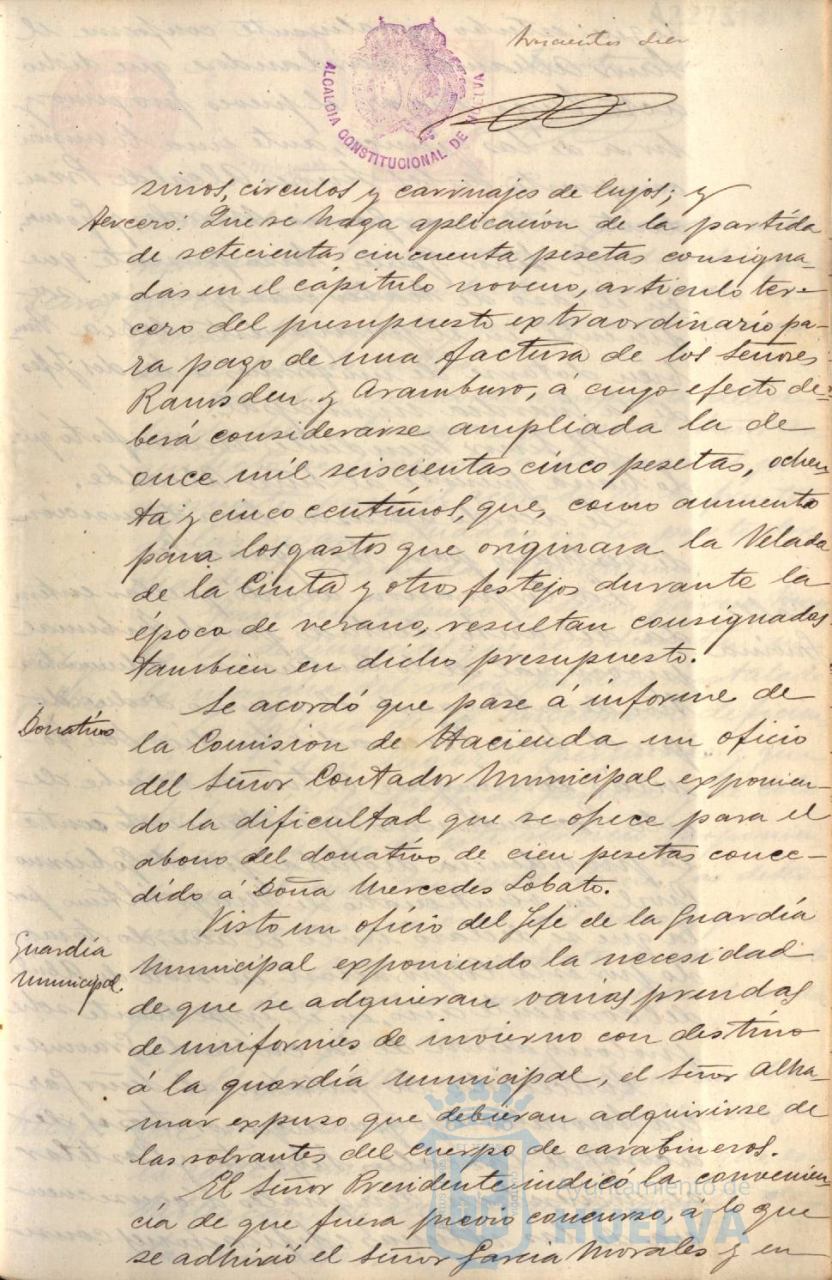 trescientos diez
ALCALDIA CONSTITUCIONAL DE HUELVA
sinos, circulos y carruajes de lujos; y
tercero: Que se haga aplicación de la partida
de setecientas cincuenta pesetas consigna-
das en el cápitulo noveno, articulo ter-
cero del presupuesto extraordinario pa-
ra pago de una factura de los Señores
Ramsden y Aramburo, á cuyo efecto de-
berá considerarse ampliada la de
once mil seiscientas cinco pesetas, ochen-
ta y cinco centímos, que, como aumento
para los gastos que originara la Velada
de la Cinta y otros festejos durante la
época de verano, resultan consignadas
tambien en dicho presupuesto.
Donativo
Se acordó que pase á informe de
la Comision de Hacienda un oficio
del Señor Contador Municipal exponien-
do la dificultad que se ofrece para el
abono del donativo de cien pesetas conce-
dido á Doña Mercedes Lobato.
Guardia
Municipal.
Visto un oficio del Jefe de la Guardia
Municipal exponiendo la necesidad
de que se adquieran varias prendas
de uniformes de invierno con destino
á la guardia municipal, el Señor Alha-
mar expuso que debieran adquirirse de
las sobrantes del cuerpo de carabineros.
El Señor Presidente indicó la convenien-
cia de que fuera previo concurso, á lo que
se adhirió el Señor Garcia Morales y en
Ayuntamiento de
HUELVA